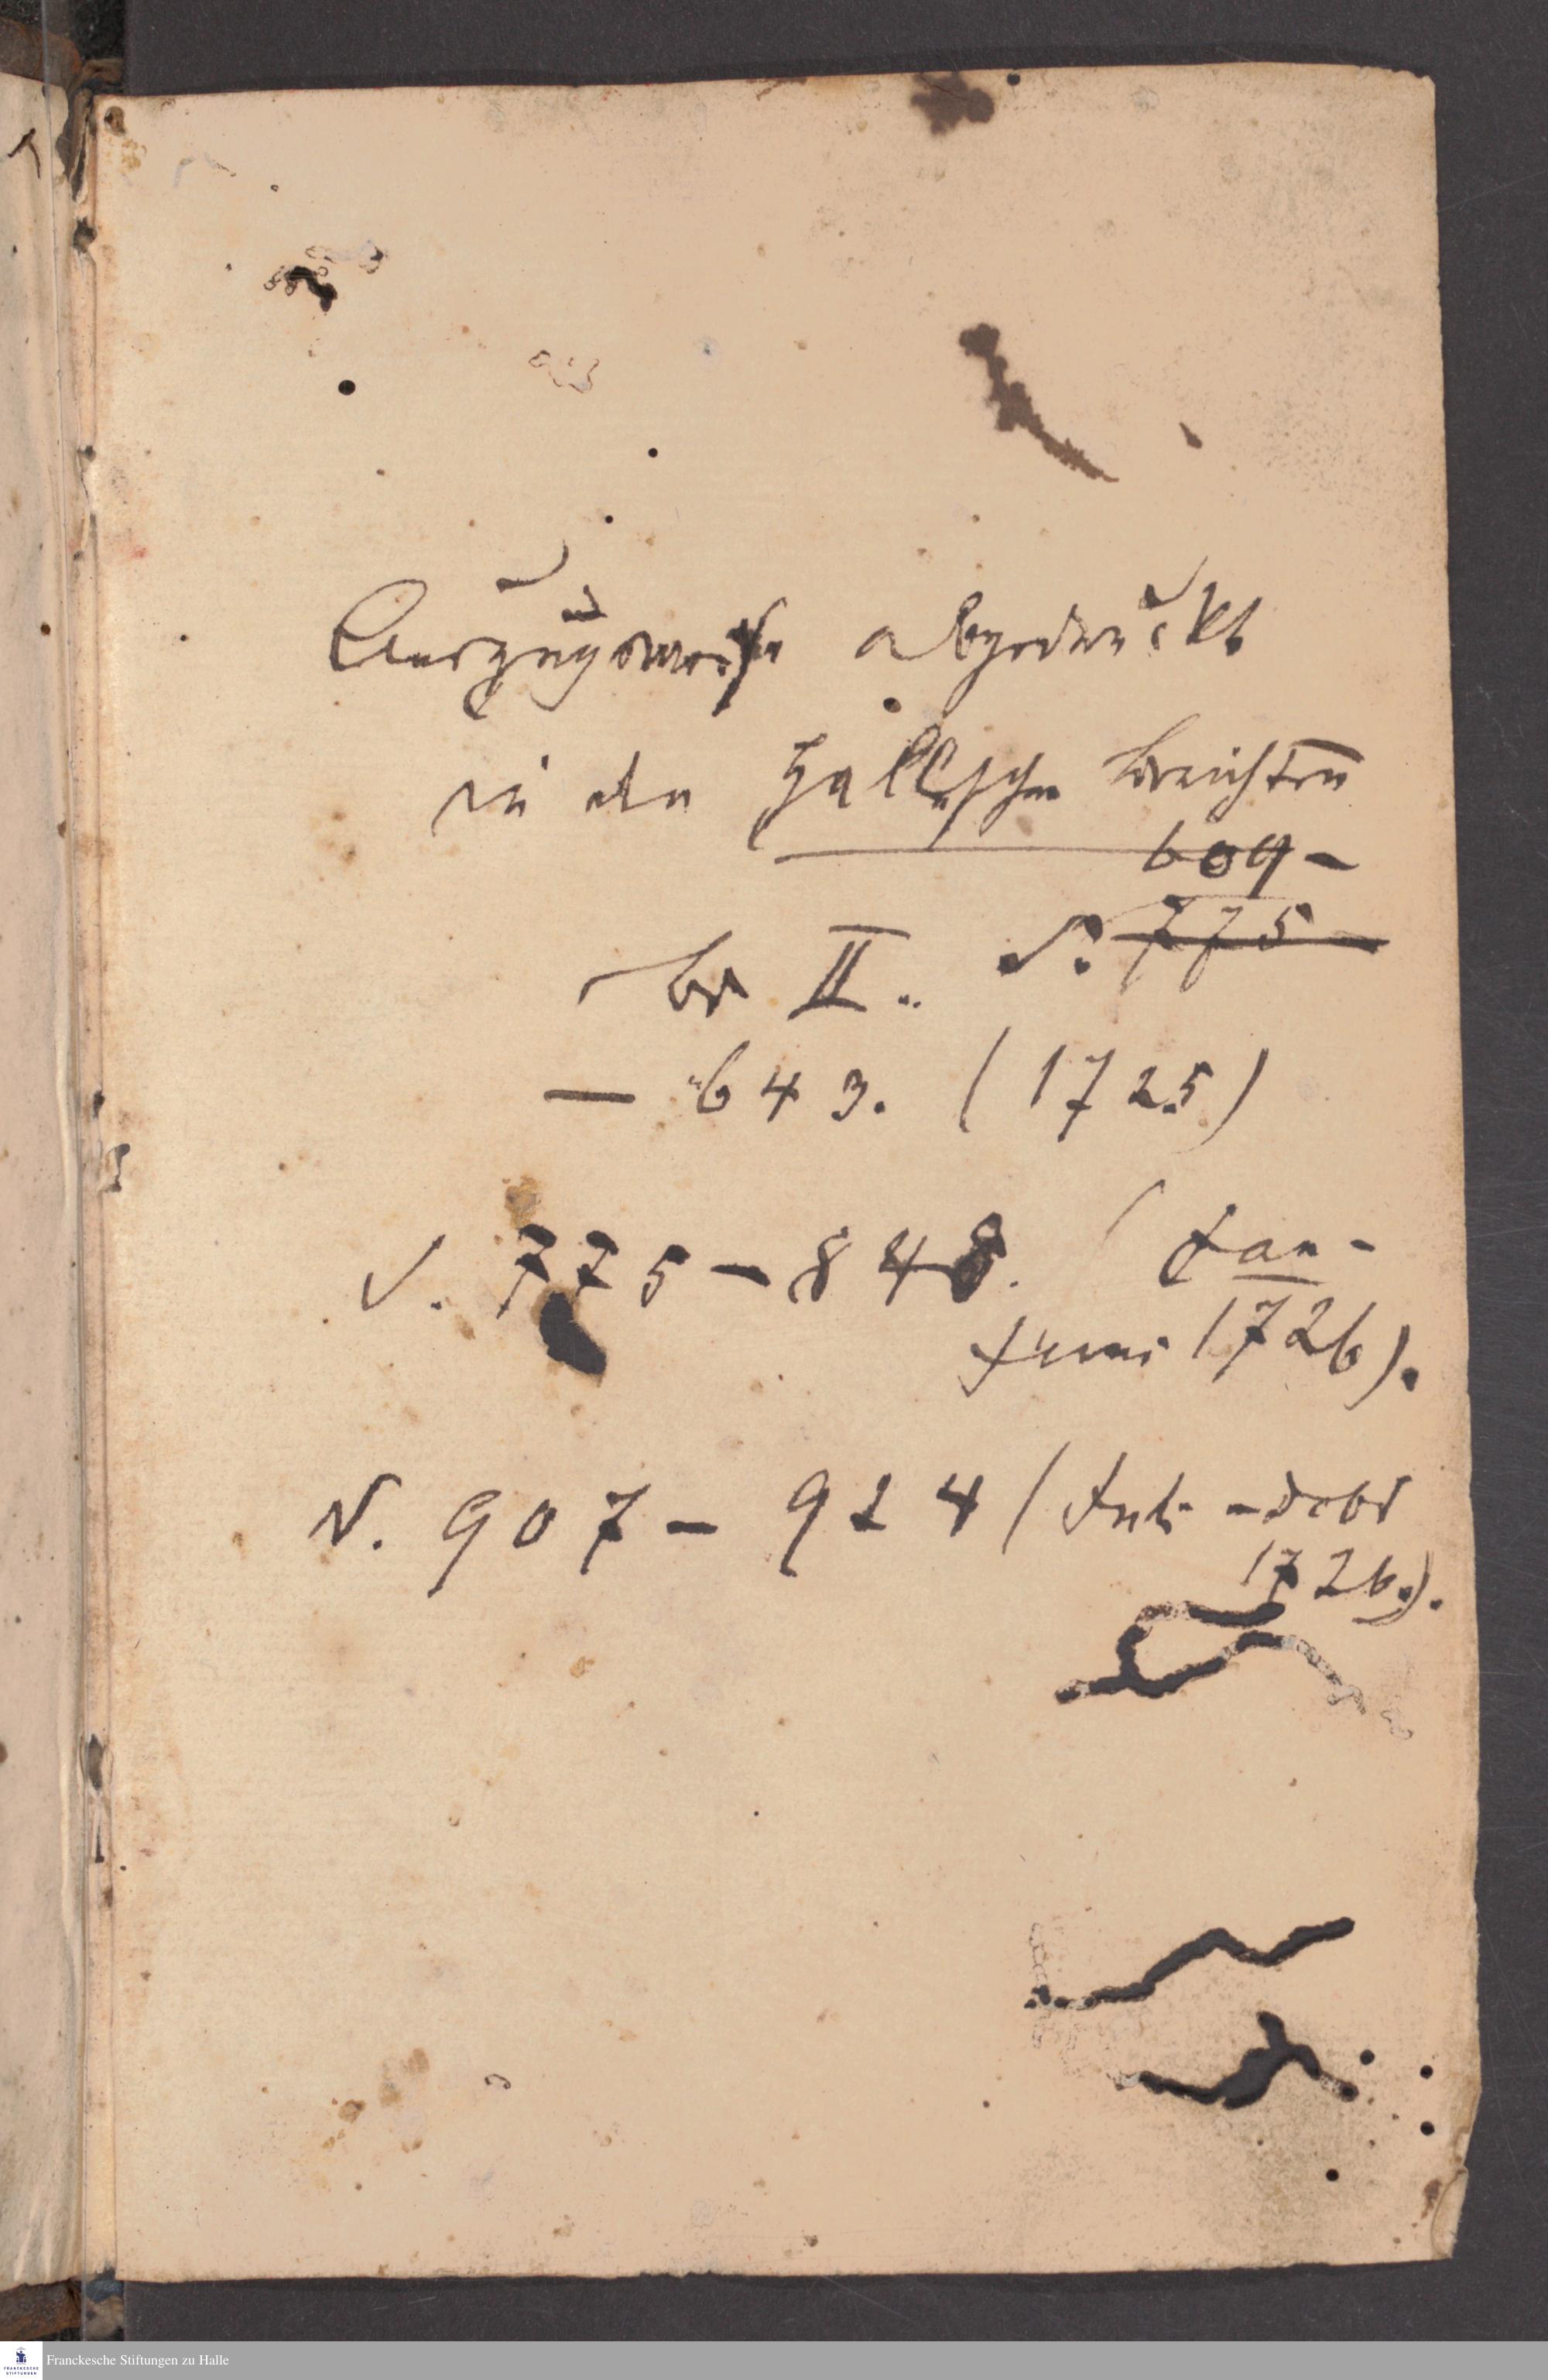 Auszugsweise abgedruckt
in den Hallischen Berichten
609-
Bd II. S. 775-
— 643. (1725)
S. 775-848. (Jan-
Juni 1726).
S. 907-924 (Juli-Octbr
1726.).
FRANCKESCHE STIFTUNGEN
Franckesche Stiftungen zu Halle